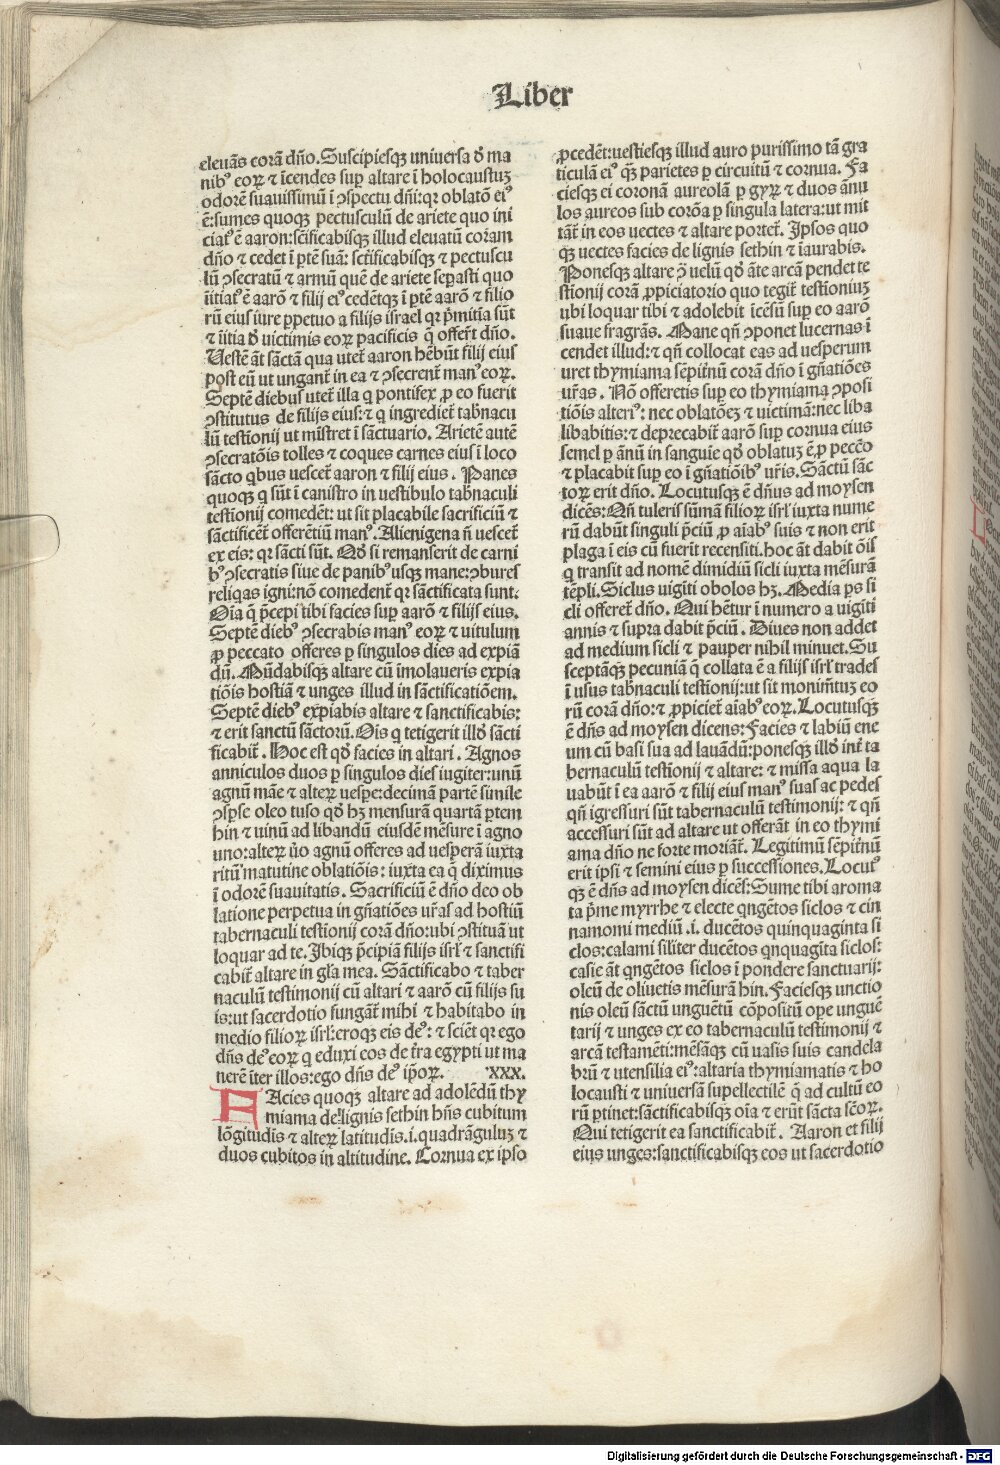 Liber
eleuãs corã dño. Suscipiesqꝫ uniuersa ð ma
nibꝰ eoꝝ ⁊ ĩcendes sup̱ altare ĩ holocaustuꝫ
odorẽ suauissimũ ĩ ꝯspectu dñi: qꝛ oblatõ eiꝰ
ẽ: sumes quoqꝫ pectusculũ de ariete quo ini
ciatꝰ ẽ aaron: scĩficabisqꝫ illud eleuatũ coram
dño ⁊ cedet ĩ ꝑtẽ suã: scĩrificabisqꝫ ⁊ pectuscu
lũ ꝯsecratũ ⁊ armũ quẽ de ariete seꝑasti quo
ĩitiatꝰ ẽ aarõ ⁊ filij eiꝰ cedẽtqꝫ ĩ ꝑtẽ aarõ ⁊ filio
rũ eius iure ꝑpetuo a filijs israel qꝛ p̃mitĩa sũt
⁊ ĩitia ð victimis eoꝝ pacificis q̃ offerr̃t dño.
Uestẽ ãt sãctã qua utet̃ aaron hẽbũt filij eius
post eũ ut ungant̃ in ea ⁊ ꝯsecrent̃ manꝰ eoꝝ.
Septẽ diebus utet̃ illa q pontifex ꝓ eo fuerit
ꝯstitutus de filijs eius: ⁊ q ingrediet̃ tab̃nacu
lũ testĩonij ut mĩstret ĩ sãctuario. Arietẽ autẽ
ꝯsecratõis tolles ⁊ coques carnes eius ĩ loco
sãcto qbus uescet̃ aaron ⁊ filij eius. Panes
quoqꝫ q sũt ĩ canistro in uestibulo tab̃naculi
testĩonij comedẽt: ut sit placabile sacrificiũ ⁊
sãctificẽt̃ offerẽtiũ manꝰ. Alienigena ñ uescet̃
ex eis: qꝛ sãcti sũt. Qð si remanserit de carni
bꝰ ꝯsecratis siue de panibꝰ usqꝫ mane: ꝯbures
reliqas igni: nõ comedent̃ qꝛ sãctificata sunt.
Oĩa q̃ p̃cepi tibi facies sup̱ aarõ ⁊ filijs eius.
Septẽ diebꝰ ꝯsecrabis manꝰ eoꝝ ⁊ uitulum
ꝓ peccato offeres ꝑ singulos dies ad expiã
dũ. Mũdabisqꝫ altare cũ ĩmolaueris expia
tiõis hostiã ⁊ unges illud in sãctificatiõem.
Septẽ diebꝰ expiabis altare ⁊ sanctificabis:
⁊ erit sanctũ sãctorũ. Oĩs q tetigerit illð sãcti
ficabit̃. Hoc est qð facies in altari. Agnos
anniculos duos ꝑ singulos dies iugiter: unũ
agnũ mãe ⁊ alteꝝ uesꝑe: decimã partẽ simile
ꝯsꝑse oleo tuso qð hꝫ mensurã quartã ꝑtem
hin ⁊ uinũ ad libandũ eiusdẽ mẽsure ĩ agno
uno: alteꝝ ũo agnũ offeres ad uesperã iuxta
ritũ matutine oblatiõis: iuxta ea q̃ diximus
ĩ odorẽ suauitatis. Sacrificiũ ẽ dño deo ob
latione perpetua in gñatiões ur̃as ad hostiũ
tabernaculi testĩonij corã dño: ubi ꝯstituã ut
loquar ad te. Ibiqꝫ p̃cipiã filijs isrl̃ ⁊ sanctifi
cabit̃ altare in gl̃a mea. Sãctificabo ⁊ taber
naculũ testimonij cũ altari ⁊ aarõ cũ filijs su
is: ut sacerdotio fungãt̃ mihi ⁊ habitabo in
medio filioꝝ isrl̃: eroqꝫ eis deꝰ: ⁊ sciẽt qꝛ ego
dñs deꝰ eoꝝ q eduxi eos de t̃ra egypti ut ma
nerẽ ĩter illos: ego dñs deꝰ ip̃oꝝ. XXX.
FAcies quoqꝫ altare ad adolẽdũ thy
miama de lignis sethin hñs cubitum
lõgitudis ⁊ alteꝝ latitudis .i. quadrãguluꝫ ⁊
duos cubitos in altitudine. Cornua ex ipso
ꝓcedẽt: uestiesqꝫ illud auro purissimo tã gra
ticulã eiꝰ q̃ꝫ parietes ꝑ circuitũ ⁊ cornua. Fa
ciesqꝫ ei coronã aureolã ꝑ gyꝝ ⁊ duos ãnu
los aureos sub corõa ꝑ singula latera: ut mit
tãt̃ in eos uectes ⁊ altare portet̃. Ipsos quo
qꝫ uectes facies de lignis sethin ⁊ ĩaurabis.
Ponesqꝫ altare ꝯ̃ uelũ qð ãte arcã pendet te
stĩonij corã ꝓpiciatorio quo tegit̃ testĩoniuꝫ
ubi loquar tibi ⁊ adolebit ĩcẽsũ sup̱ eo aarõ
suaue fragrãs. Mane qñ ꝯponet lucernas ĩ
cendet illud: ⁊ qñ collocat eas ad uesperum
uret thymiama sẽpit̃nũ corã dño ĩ gñatiões
ur̃as. Nõ offeretis sup̱ eo thymiama ꝯposi
tiõis alteriꝰ: nec oblatõeꝫ ⁊ uictimã: nec liba
libabitis: ⁊ deprecabit̃ aarõ sup̱ cornua eius
semel ꝑ ãnũ in sanguie qð oblatuꝫ ẽ ꝓ peccõ
⁊ placabit sup̱ eo ĩ gñatiõibꝰ ur̃is. Sãctũ sãc
toꝝ erit dño. Locutusqꝫ ẽ dñus ad moysen
dicẽs: Qñ tuleris sũmã filioꝝ isrl̃ iuxta nume
rũ dabũt singuli p̃ciũ ꝓ aĩabꝰ suis ⁊ non erit
plaga ĩ eis cũ fuerit recensiti. hoc ãt dabit õis
q transit ad nomẽ dimidiũ sicli iuxta mẽsurã
tẽpli. Siclus uigĩti obolos hꝫ. Media ꝑs si
cli offeret̃ dño. Qui hẽtur ĩ numero a uigĩti
annis ⁊ supra dabit p̃ciũ. Diues non addet
ad medium sicli ⁊ pauper nihil minuet. Su
sceptãqꝫ pecuniã q̃ collata ẽ a filijs isrl̃ trades
ĩ usus tab̃naculi testĩonij: ut sit monim̃tuꝫ eo
rũ corã dño: ⁊ ꝓpiciet̃ aĩabꝰ eoꝝ. Locutusqꝫ
ẽ dñs ad moysen dicens: Facies ⁊ labiũ ene
um cũ basi sua ad lauãdũ: ponesqꝫ illð int̃ ta
bernaculũ testĩonij ⁊ altare: ⁊ missa aqua la
uabũt ĩ ea aarõ ⁊ filij eius manꝰ suas ac pedes
qñ igressuri sũt tabernaculũ testimonij: ⁊ qñ
accessuri sũt ad altare ut offerãt in eo thymi
ama dño ne forte moriãt̃. Legitimũ sẽpit̃nũ
erit ipsi ⁊ semini eius ꝑ successiones. Locutꝰ
qꝫ ẽ dñs ad moysen dicẽs: Sume tibi aroma
ta p̃me myrrhe ⁊ electe qngẽtos siclos ⁊ cin
namomi mediũ .i. ducẽtos quinquaginta si
clos: calami siliter ducẽtos qnquagĩta siclos:
casie ãt qngẽtos siclos ĩ pondere sanctuarij:
oleũ de oliuetis mẽsurã hin. Faciesqꝫ unctio
nis oleũ sãctũ unguẽtũ cõpositũ oꝑe unguẽ
tarij ⁊ unges ex eo tabernaculũ testimonij ⁊
arcã testamẽti: mẽsãqꝫ cũ uasis suis candela
brũ ⁊ utensilia eiꝰ: altaria thymiamatis ⁊ ho
locausti ⁊ uniuersã supellectilẽ q̃ ad cultũ eo
rũ ꝑtinet: sãctificabisqꝫ oĩa ⁊ erũt sãcta sc̃oꝝ.
Qui tetigerit ea sanctificabit̃. Aaron et filij
eius unges: sanctificabisqꝫ eos ut sacerdotio
Digitalisierung gefördert durch die Deutsche Forschungsgemeinschaft - DFG